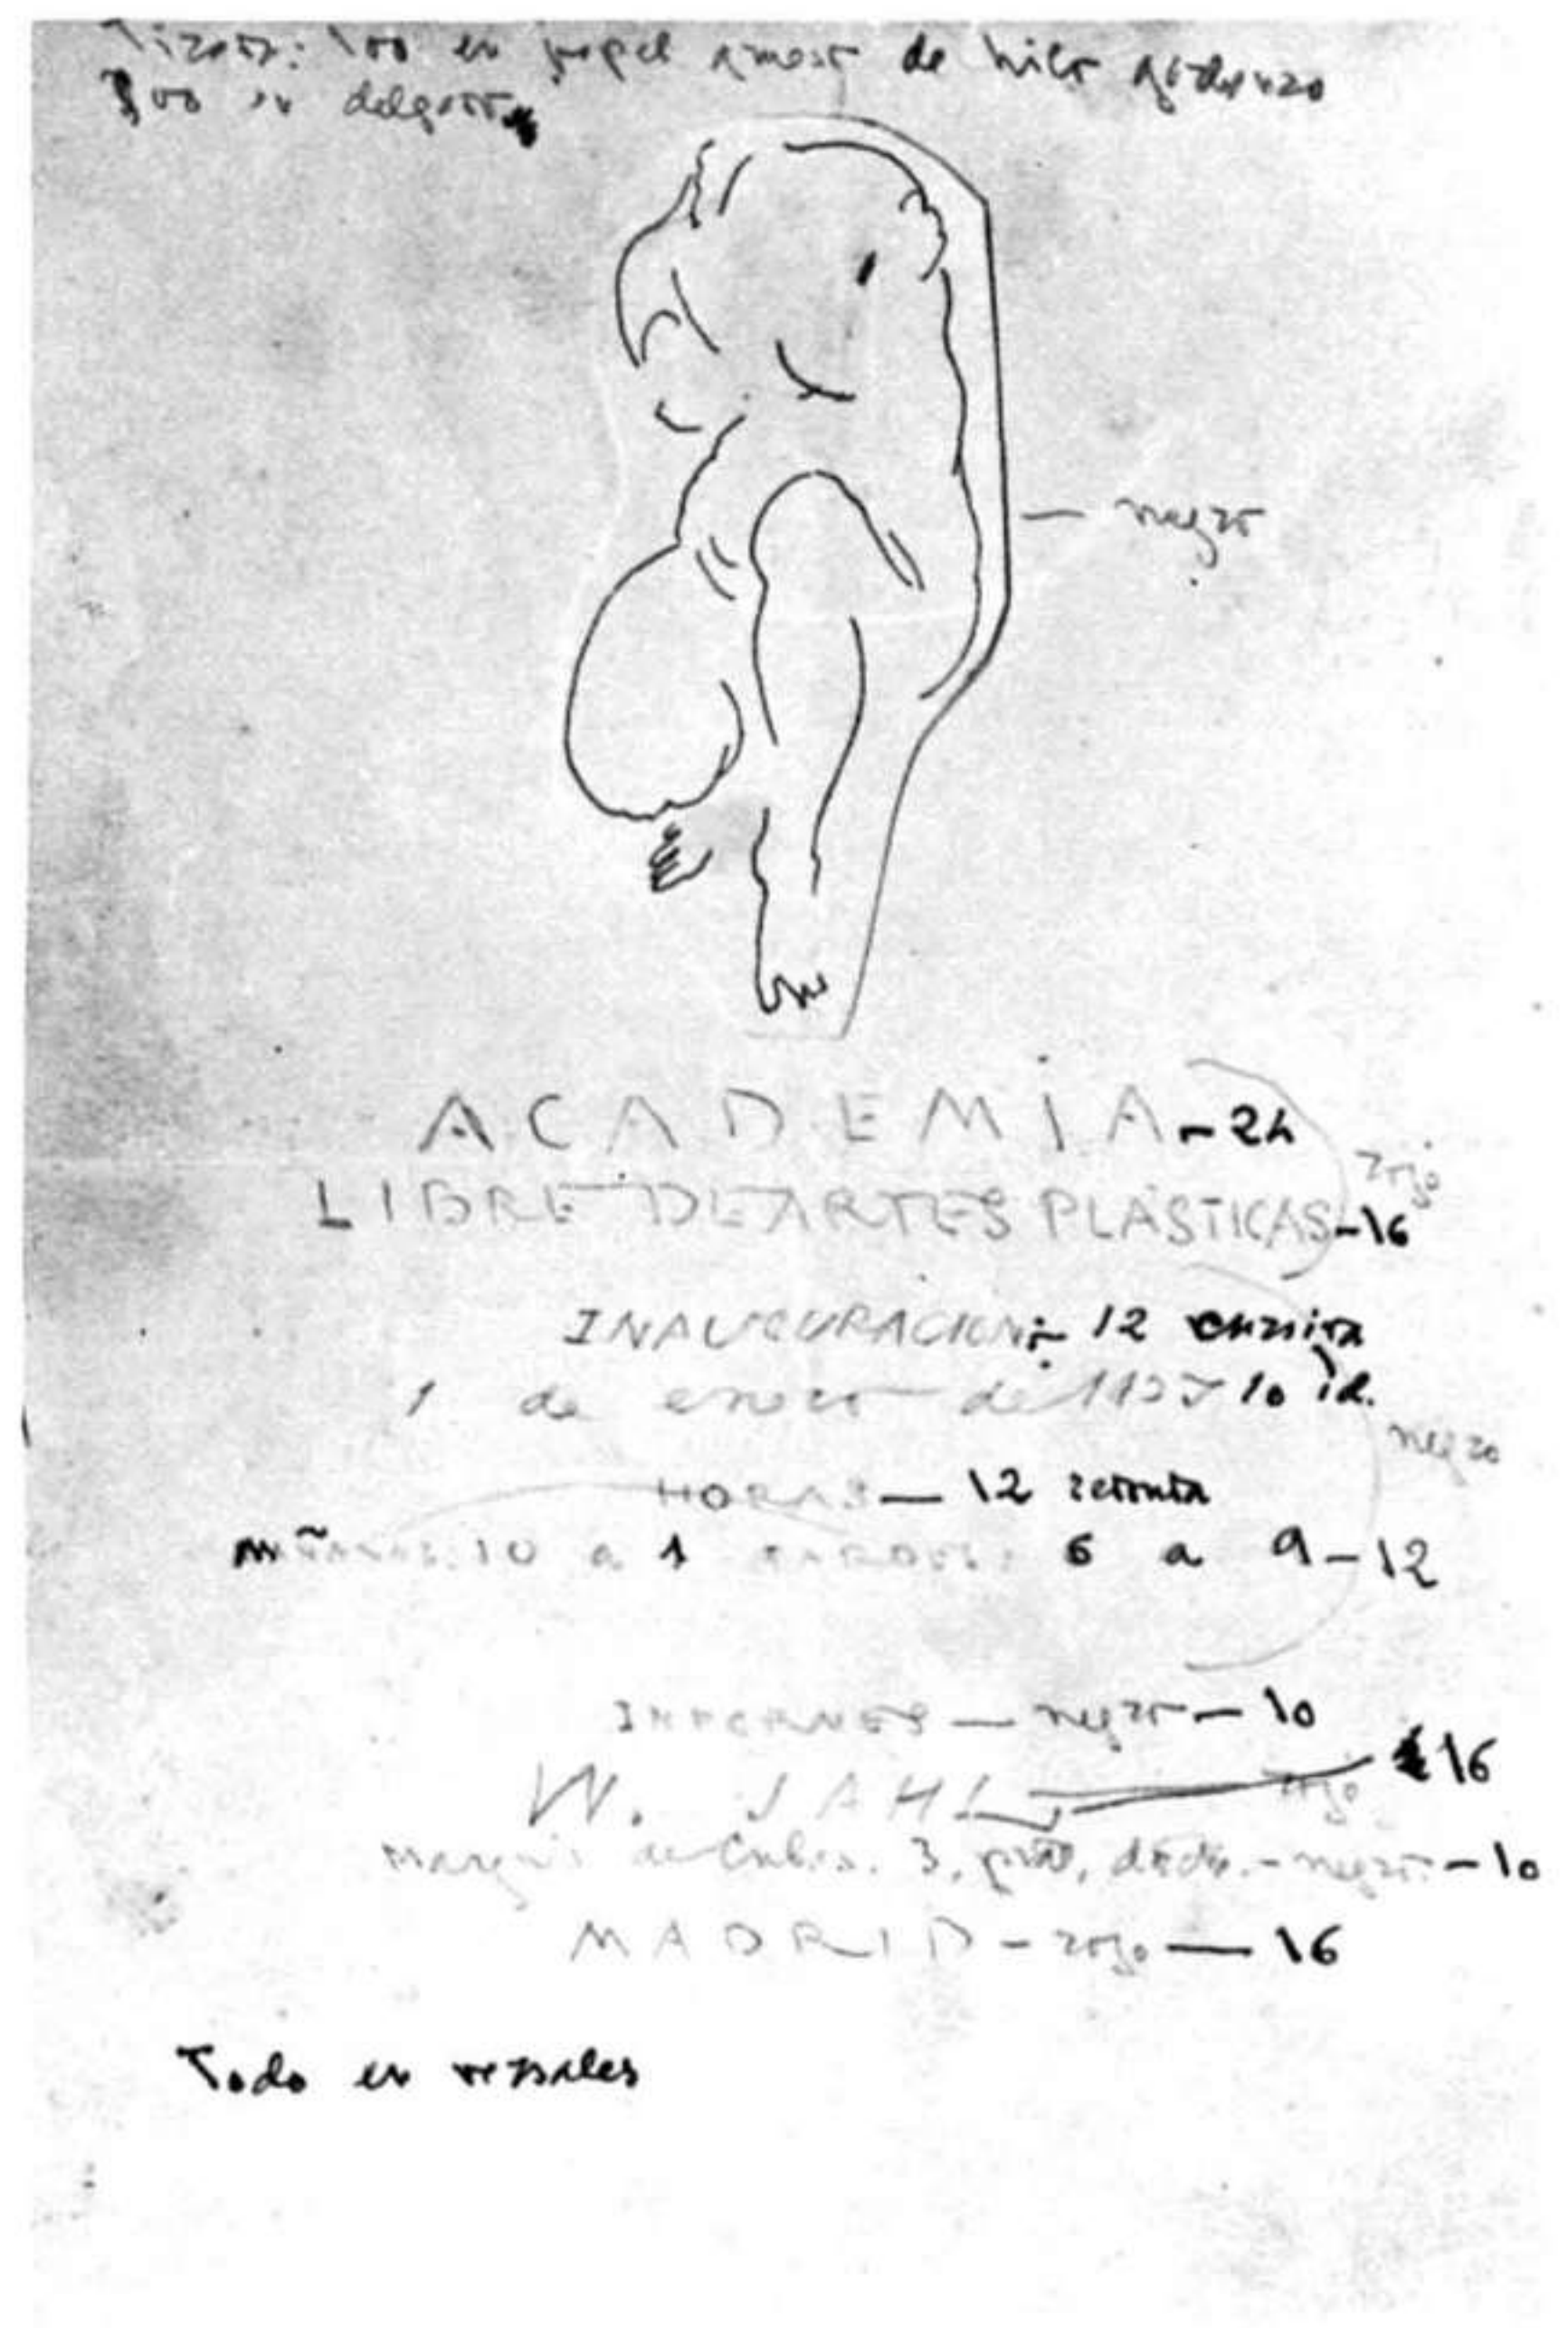 Tirar: 100 en papel grueso de hilo
en delgado
— negro
ACADEMIA - 24
rojo
LIBRE DE ARTES PLÁSTICAS - 16
INAUGURACION: - 12 cursiva
1 de enero de 10 id.
negro
HORAS — 12 redonda
MAÑANAS: 10 a 1 TARDES: 6 a 9 - 12
INFORMES — negro — 10
W. JAHL 16
rojo
Marqués de Cubas. 3, dcha. - negro - 10
MADRID - rojo — 16
Todo en versales